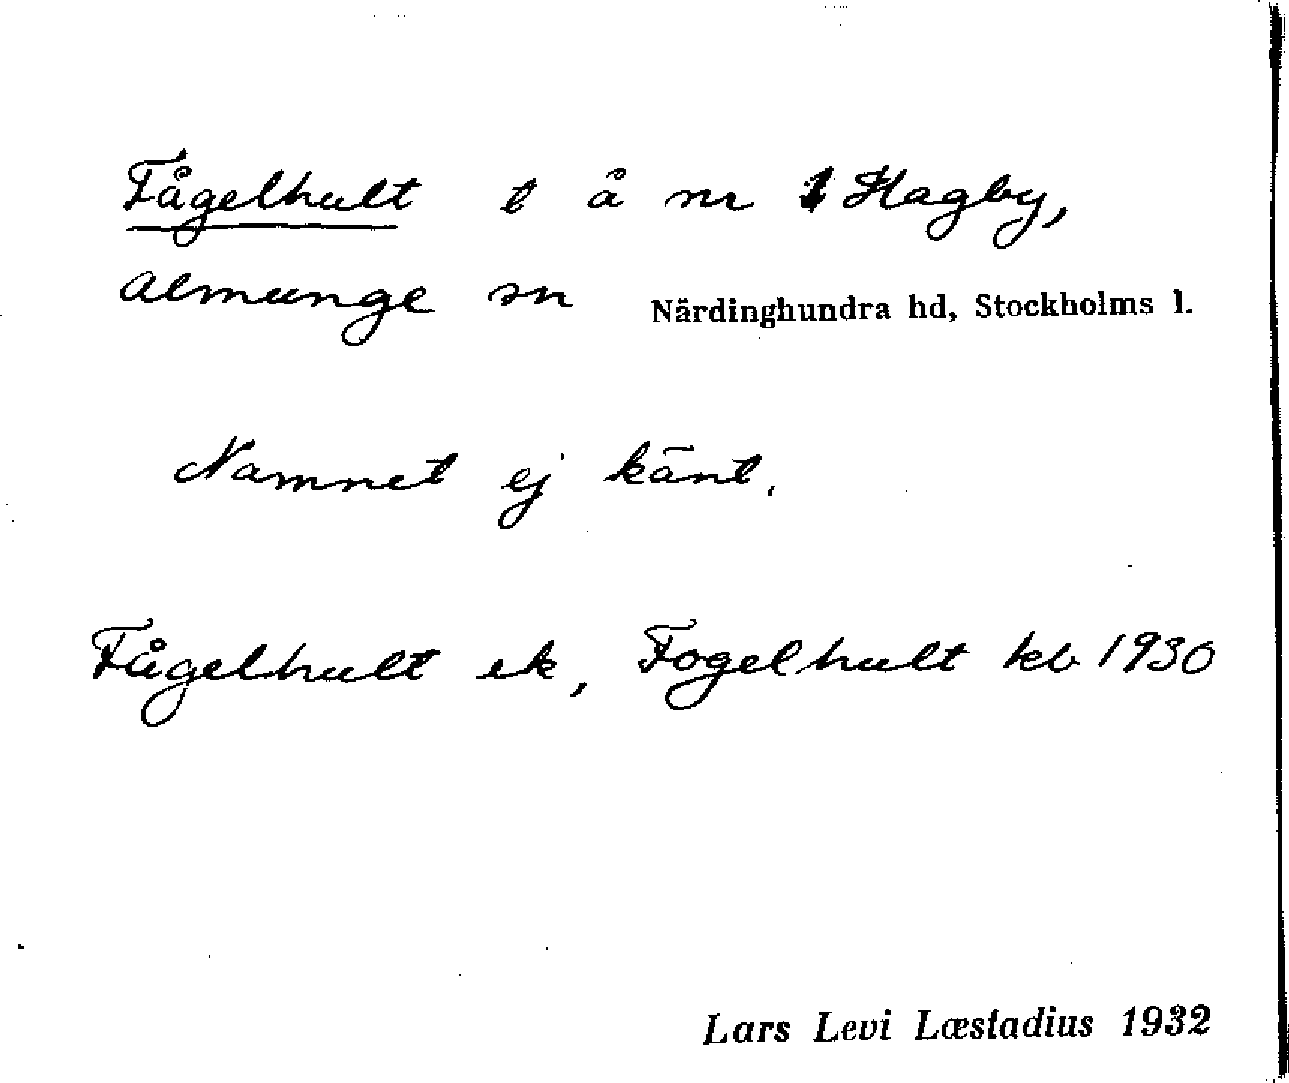 Fågelhult t å nr 1 Hagby,
Almunge sn Närdinghundra hd, Stockholms l.
Namnet ej känt.
Fågelhult ek, Fogelhult kb 1930
Lars Levi Læstadius 1932